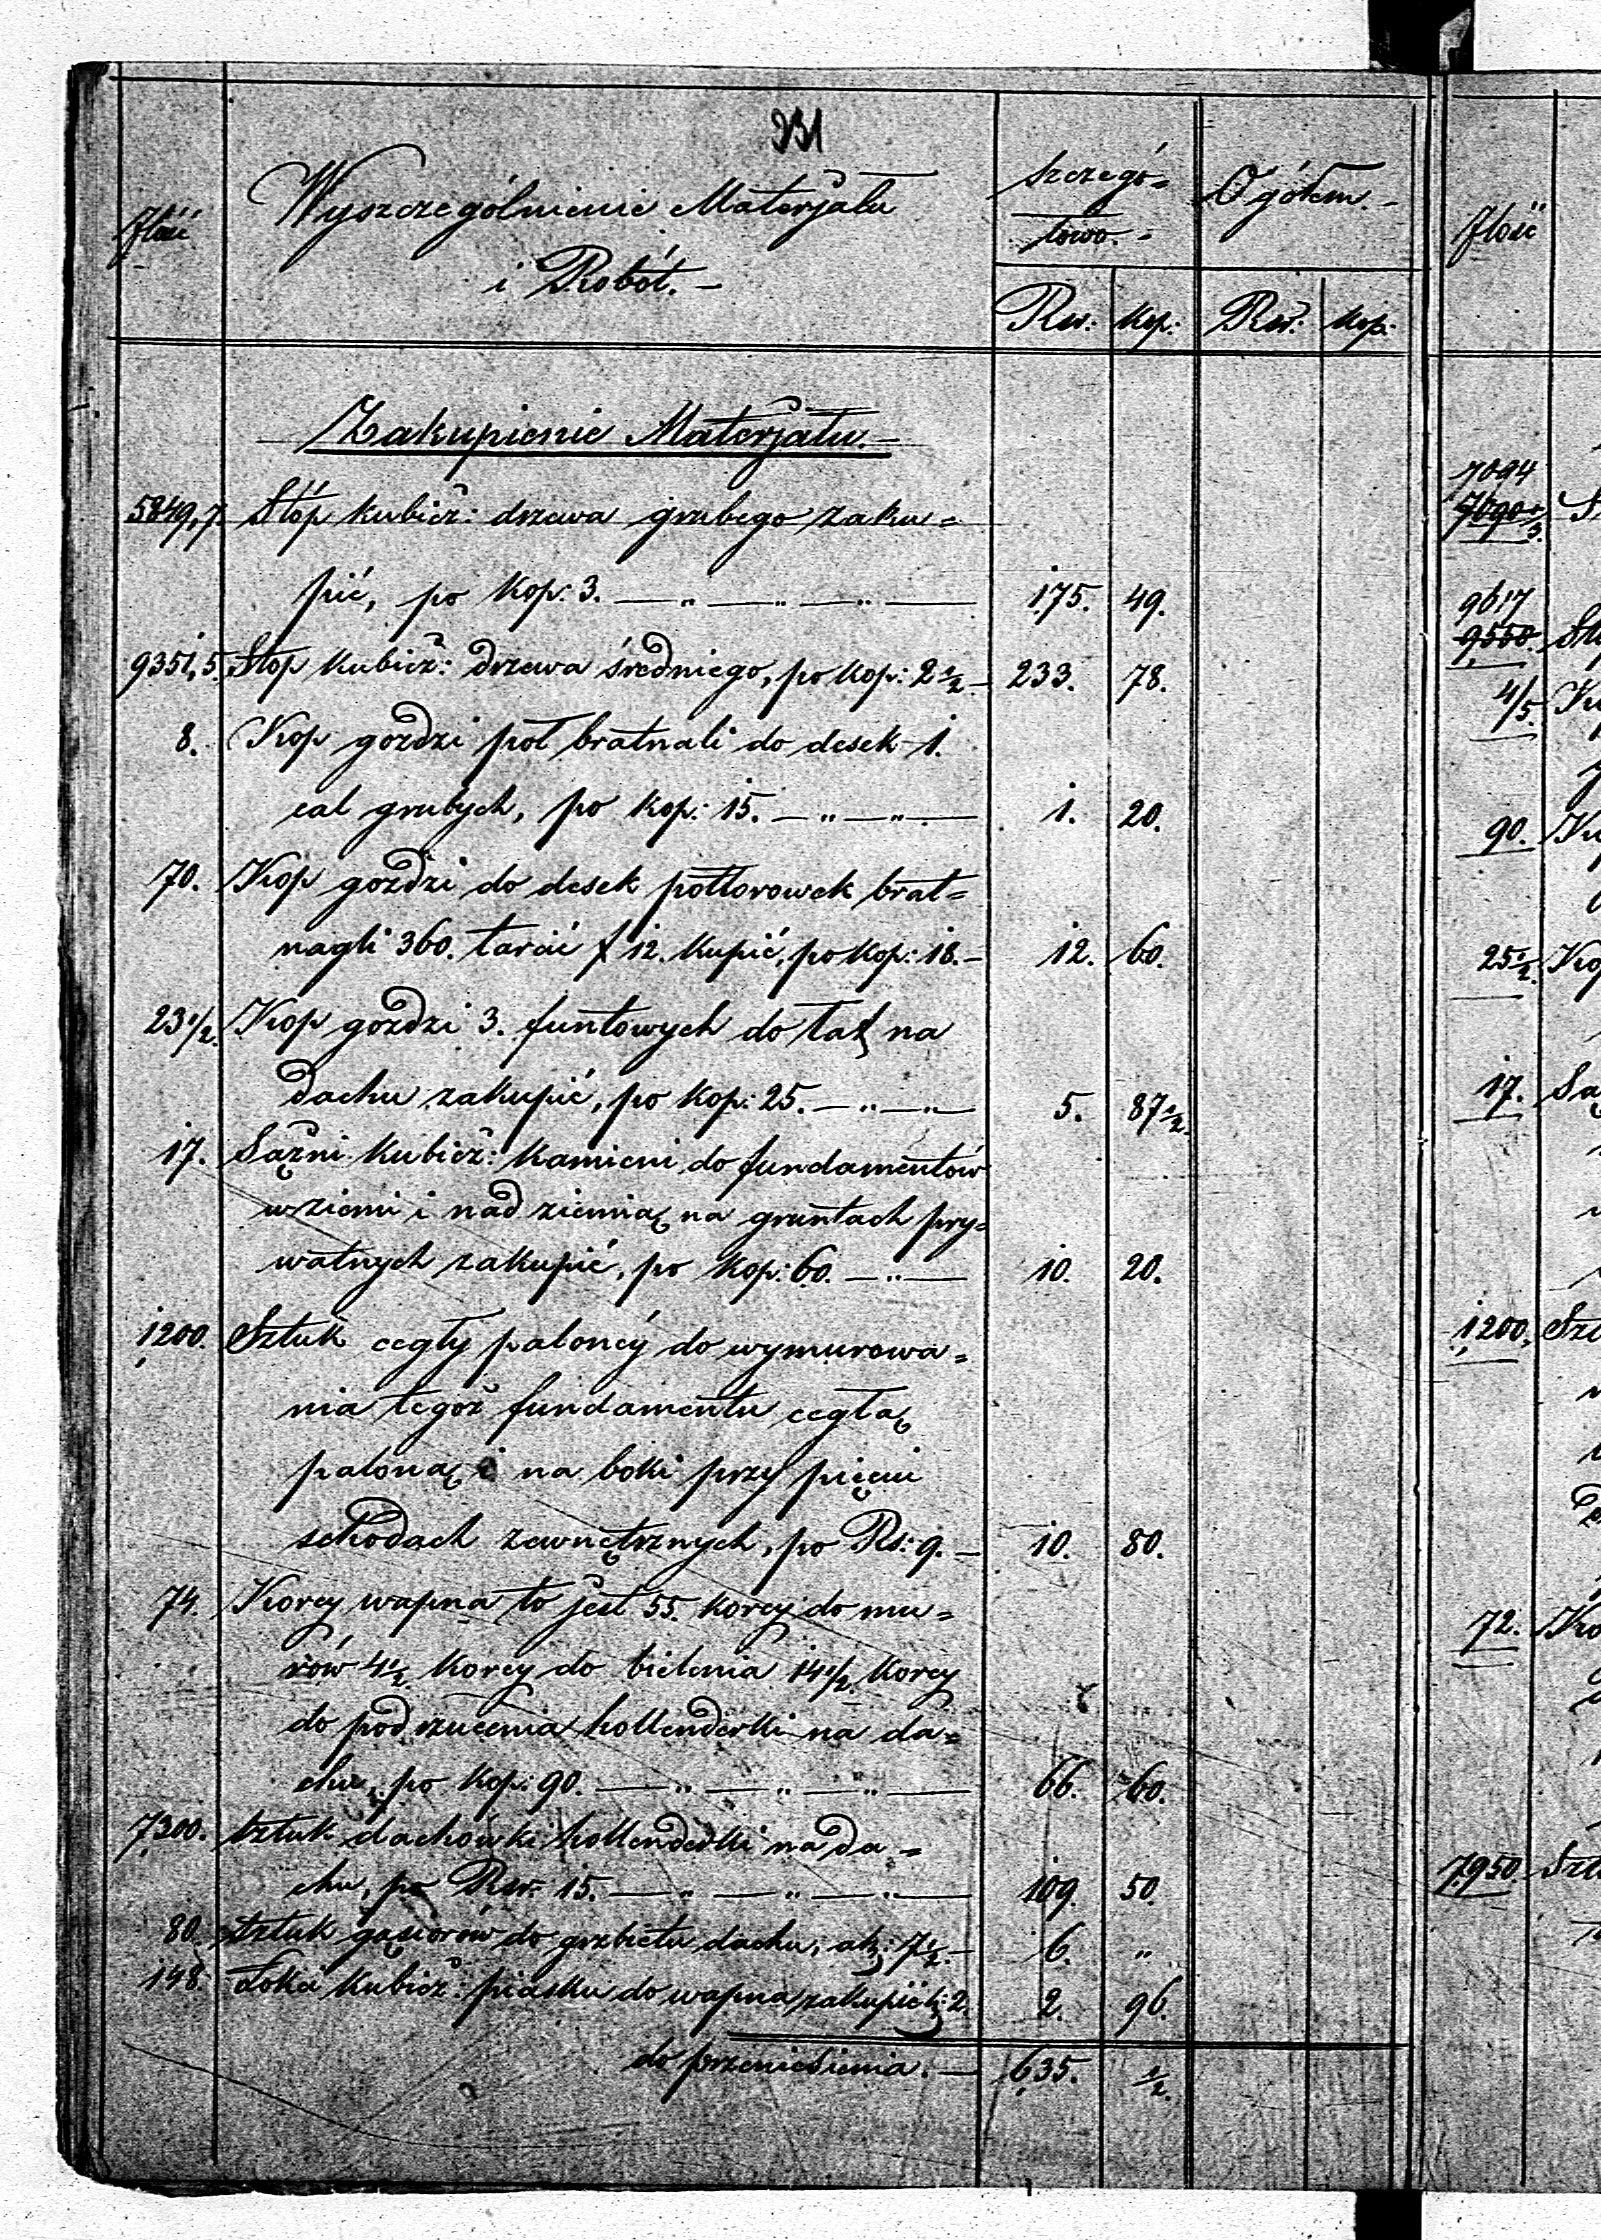 331
Ilość
Wyszczególnienie Materjału
i Robót. —
szczegó=
łowo. =
Ogółem. —
Rsr: kop: Rsr: kop:
Zakupienie Materjału. —
5849,7. Stóp kubicz: drzewa grubego zaku=
pić, po kop: 3. — „ — „ — „ — 175. 49.
9351,5. Stop kubicz: drzewa średniego, po kop: 2 1/2. — 233. 78.
8. Kop gozdzi pół bratnali do desek 1.
cal grubych, po kop: 15. — „ — „ — 1. 20.
70. Kop gozdzi do desek półtorowek brat=
nagli 360. tarcic f 12. kupić, po kop: 18. — 12. 60.
23 1/2. Kop gozdzi 3. funtowych do łat na
dachu zakupić, po kop: 25. — „ — „ — 5. 87 1/2.
17. Sążni kubicz: kamieni do fundamentów
w ziemi i nad ziemią na gruntach pry=
watnych zakupić, po kop: 60. — „ — 10. 20.
1200. Sztuk cegły palonéy do wymurowa=
nia tegoż fundamentu cegłą
paloną i na boki przy pięciu
schodach zewnętrznych, po Rs: 9. — 10. 80.
74. Korcy wapna to jest 55. korcy do mu=
rów 4 1/2 korcy do bielenia 14 1/2. korcy
do podrzucenia hollenderki na da=
chu, po kop: 90. — „ — „ — „ — 66. 60.
7300. sztuk dachówki hollenderki na da=
chu, po Rsr: 15. — „ — „ — „ — 109. 50.
80. sztuk gąsiorów do grzbietu dachu, a k: 7 1/2. — 6. „
148. Łokci kubicz: piasku do wapna zakupić k: 2. 2. 96.
do przeniesienia. — 635. 1/2.
Ilość
7094
9617
4/5.
90.
25 1/2. Kop
17.
1200.
72.
7950.